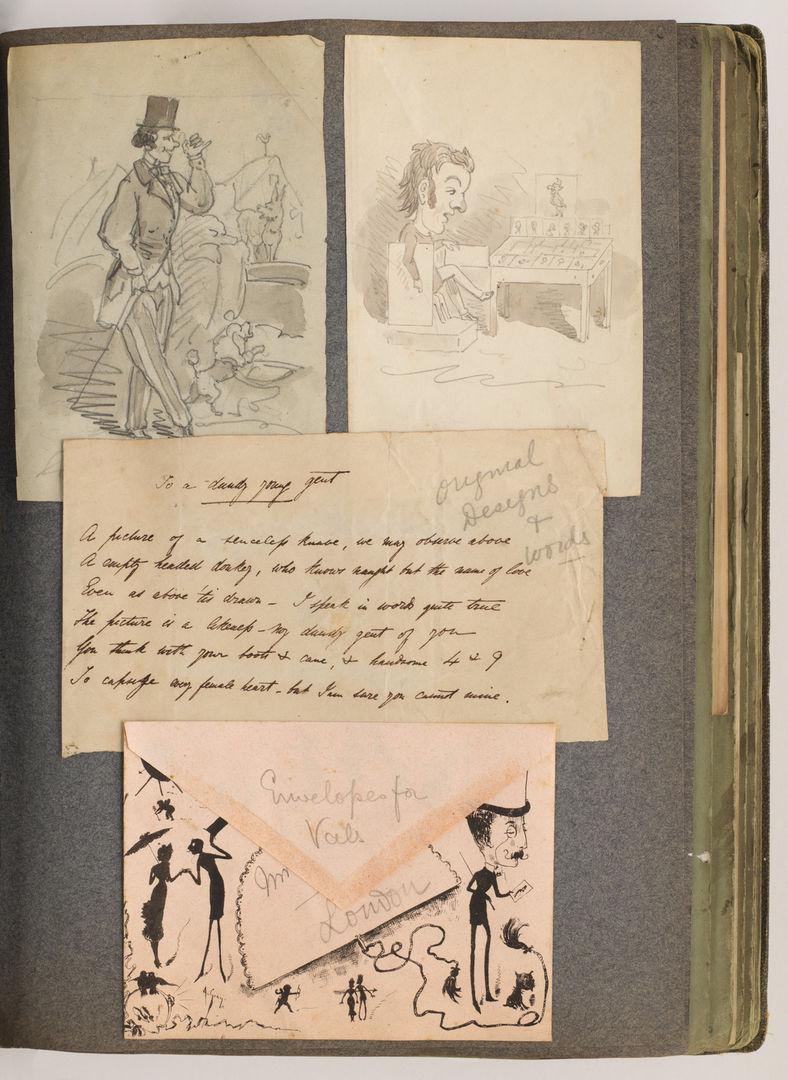 To a dandy young gent
Original
Designs
&
words
A picture of a senceless knave, we may observe above
A empty headed donkey, who knows naught but the name of love
Even as above 'tis drawn - I speak in words quite true
The picture is a likeness - my dandy gent of you
You think with your boots & cane, & handsome 4 & 9
To capsize every female heart - but I am sure you cannot mine.
Envelopes for
Vals
London